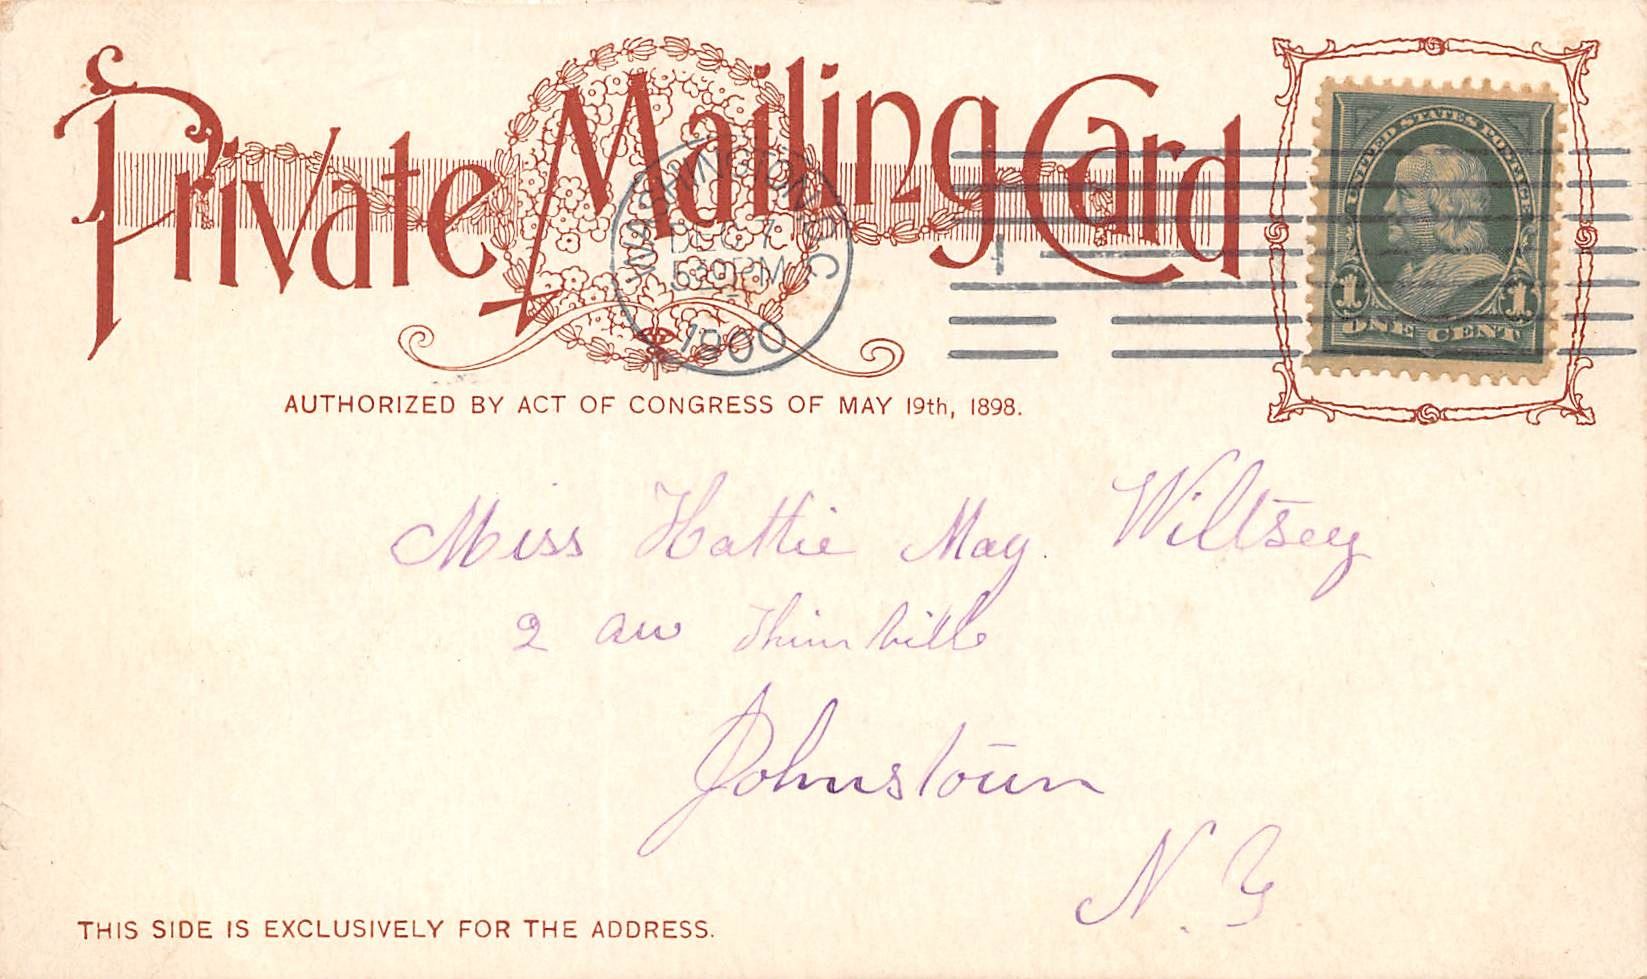 Private Mailing Card
WASHINGTON, D.C.
DEC 7
530 PM
1900
UNITED STATES POSTAGE
1 1
ONE CENT
AUTHORIZED BY ACT OF CONGRESS OF MAY 19th, 1898.
Miss Hattie May. Wiltsey
2
Johnstown
N. Y
THIS SIDE IS EXCLUSIVELY FOR THE ADDRESS.